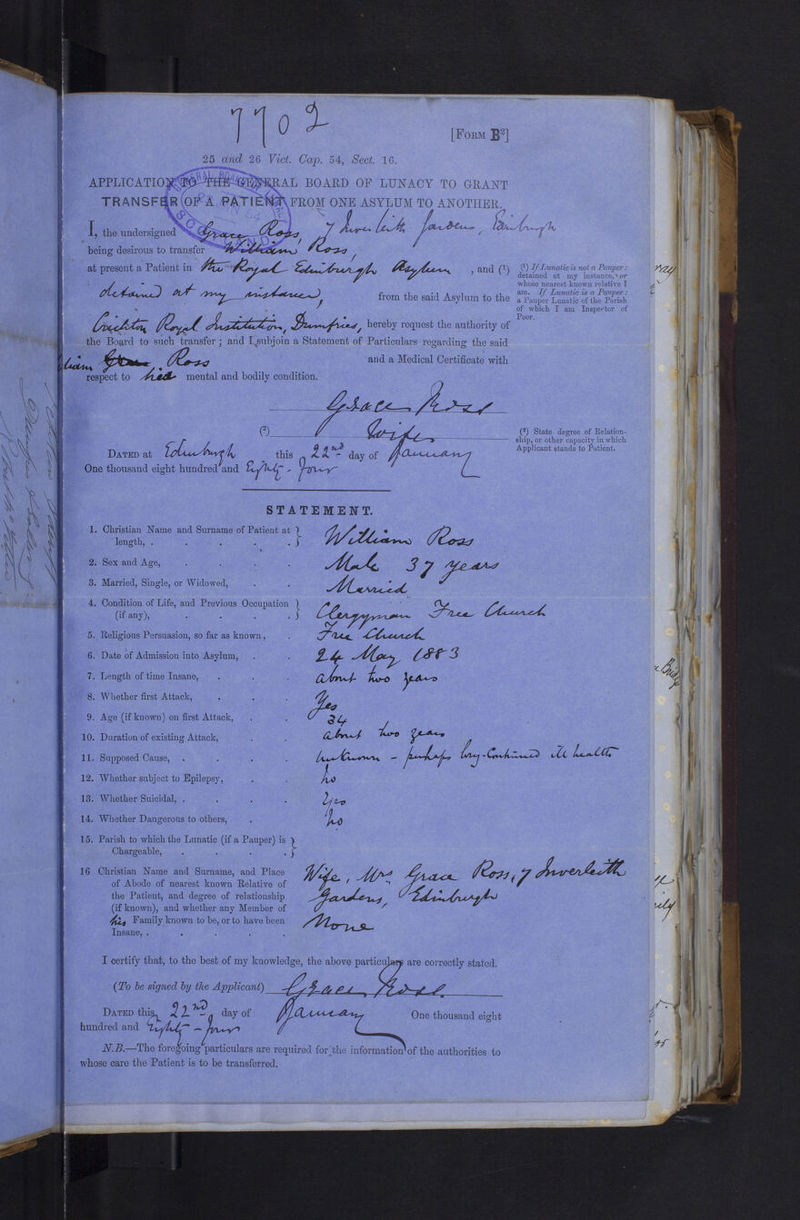 7702
[FORM B²]
25 and 26 Vict. Cap. 54, Sect. 16.
APPLICATION TO THE GENERAL BOARD OF LUNACY TO GRANT
TRANSFER OF A PATIENT FROM ONE ASYLUM TO ANOTHER.
I, the undersigned Grace Ross, 7 Inverleith Gardens, Edinburgh
being desirous to transfer William Ross,
at present a Patient in the Royal Edinburgh Asylum , and (¹)
detained at my instance, from the said Asylum to the
Crichton Royal Institution, Dumfries, hereby request the authority of
the Board to such transfer; and I subjoin a Statement of Particulars regarding the said
William Grace Ross and a Medical Certificate with
respect to his mental and bodily condition.
(¹) If Lunatic is not a Pauper:
detained at my instance, or
whose nearest known relative I
am. If Lunatic is a Pauper:
a Pauper Lunatic of the Parish
of which I am Inspector of
Poor.
Grace Ross
(²) Wife
(²) State degree of Relation-
ship, or other capacity in which
Applicant stands to Patient.
DATED at Edinburgh this 22nd day of January
One thousand eight hundred and Eighty-four
STATEMENT.
1. Christian Name and Surname of Patient at length, . William Ross
2. Sex and Age, Male 37 years
3. Married, Single, or Widowed, Married
4. Condition of Life, and Previous Occupation (if any), Clergyman Free Church
5. Religious Persuasion, so far as known, Free Church
6. Date of Admission into Asylum, 24 May 1883
7. Length of time Insane, about two years
8. Whether first Attack, Yes
9. Age (if known) on first Attack, 34
10. Duration of existing Attack, about two years
11. Supposed Cause, Unknown - perhaps long-continued ill health
12. Whether subject to Epilepsy, no
13. Whether Suicidal, . Yes
14. Whether Dangerous to others, no
15. Parish to which the Lunatic (if a Pauper) is Chargeable,
16 Christian Name and Surname, and Place
of Abode of nearest known Relative of
the Patient, and degree of relationship
(if known), and whether any Member of
his Family known to be, or to have been
Insane, .
Wife, Mrs Grace Ross, 7 Inverleith
Gardens, Edinburgh
None
I certify that, to the best of my knowledge, the above particulars are correctly stated.
(To be signed by the Applicant) Grace Ross.
DATED this 22nd day of January One thousand eight
hundred and Eighty-four
N.B.—The foregoing particulars are required for the information of the authorities to
whose care the Patient is to be transferred.